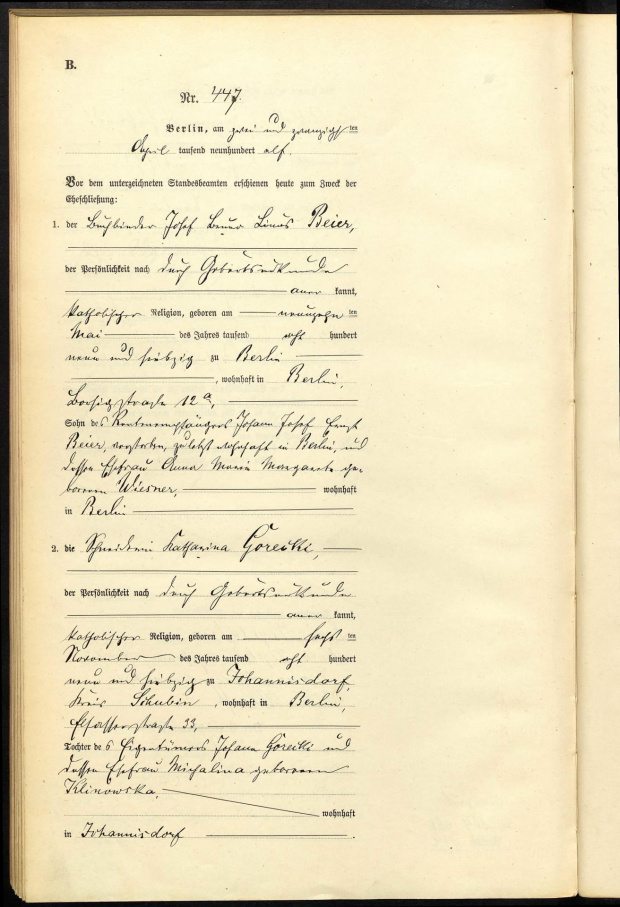 B.
Nr. 447.
Berlin, am zwei und zwanzigsten
April tausend neunhundert elf.
Vor dem unterzeichneten Standesbeamten erschienen heute zum Zweck der
Eheschließung:
1. der Buchbinder Josef Bruno Linus Beier,
der Persönlichkeit nach durch Geburtsurkunde
anerkannt,
katholischer Religion, geboren am neunzehnten
Mai des Jahres tausend acht hundert
neun und siebzig zu Berlin
, wohnhaft in Berlin,
Borsigstraße 12a,
Sohn des Rentenempfängers Johann Josef Ernst
Beier, verstorben, zuletzt wohnhaft in Berlin, und
dessen Ehefrau Anna Maria Margarete ge-
borenen Wiesner, wohnhaft
in Berlin
2. die Schneiderin Katharina Górecki,
der Persönlichkeit nach durch Geburtsurkunde
anerkannt,
katholischer Religion, geboren am sechsten
November des Jahres tausend acht hundert
neun und siebzig zu Johannisdorf,
Kreis Schubin, wohnhaft in Berlin,
Elsasserstraße 33,
Tochter des Eigentümers Johann Górecki und
dessen Ehefrau Michalina geborenen
Klinowska,
wohnhaft
in Johannisdorf.